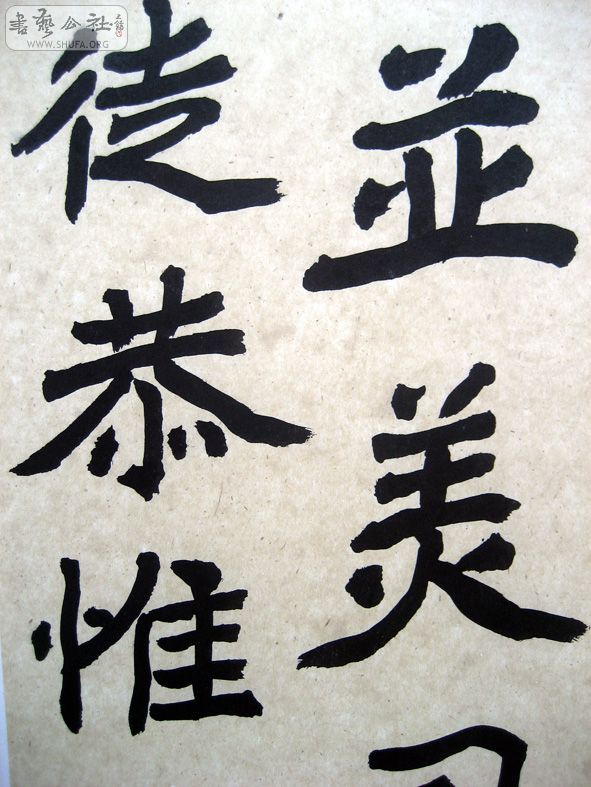 書藝公社
WWW.SHUFA.ORG
並美
徒恭惟